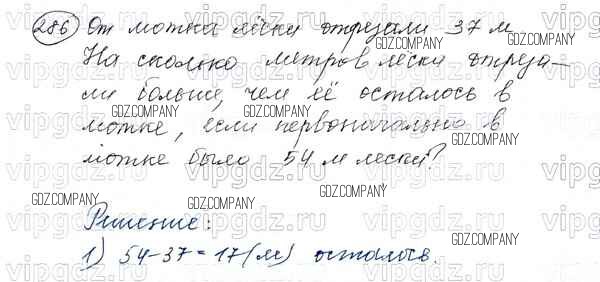 286 От мотка лески отрезали 37 м
На сколько метров лески отреза-
ли больше, чем её осталось в
мотке, если первоначально в
мотке было 54 м лески?
Решение:
1) 54-37=17(м) осталось.
vipgdz.ru
GDZ.COMPANY